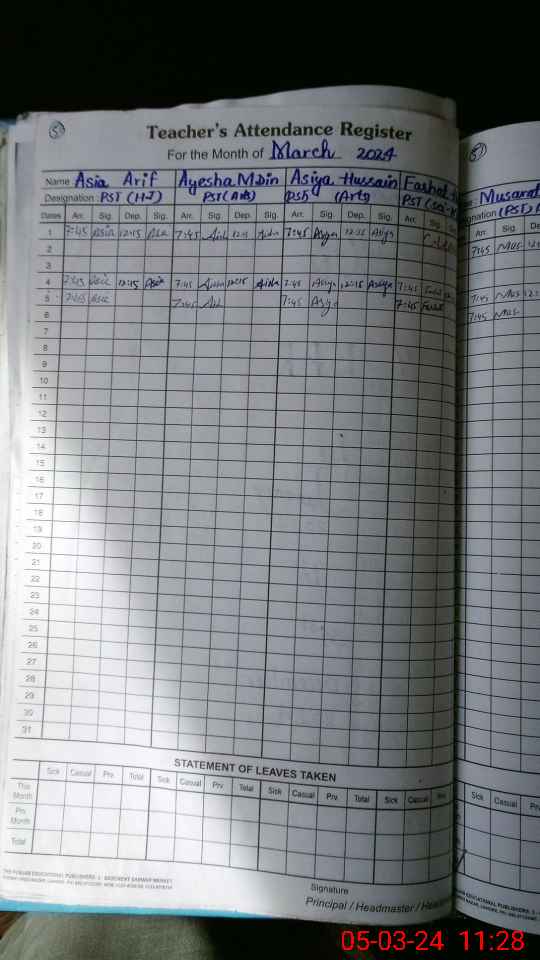 5
Teacher's Attendance Register
For the Month of March 2024
Name Asia Arif Ayesha M Din Asiya Hussain
Designation PST (H-T) PST (Arts) PST (Arts
Dates Arr. Sig. Dep. Sig. Arr. Sig. Dep. Sig. Arr. Sig. Dep. Sig. Arr. Sig.
1 7:45 Asia 12:15 7:45 12:15 7:45 Asiya 12:15 Asiya
2
3
4 7:45 Asia 12:15 Asia 7:45 Aisha 12:15 Aisha 7:45 Asiya 12:15 Asiya 7:45
5 7:45 Asia 7:45 7:45 Asiya 7:45
6
7
8
9
10
11
12
13
14
15
16
17
18
19
20
21
22
23
24
25
26
27
28
29
30
31
STATEMENT OF LEAVES TAKEN
Sick Casual Prv. Total Sick Casual Prv. Total Sick Casual Prv. Total Sick Casual
This Month
Prv. Month
Total
THE PUNJAB EDUCATIONAL PUBLISHERS
Signature
Principal / Headmaster /
Musarat
(PST)
Arr. Sig. De
7:45 Mus 12:
7:45 Mus 12:
7:45 Mus
Sick Casual Prv
EDUCATIONAL PUBLISHERS
05-03-24 11:28